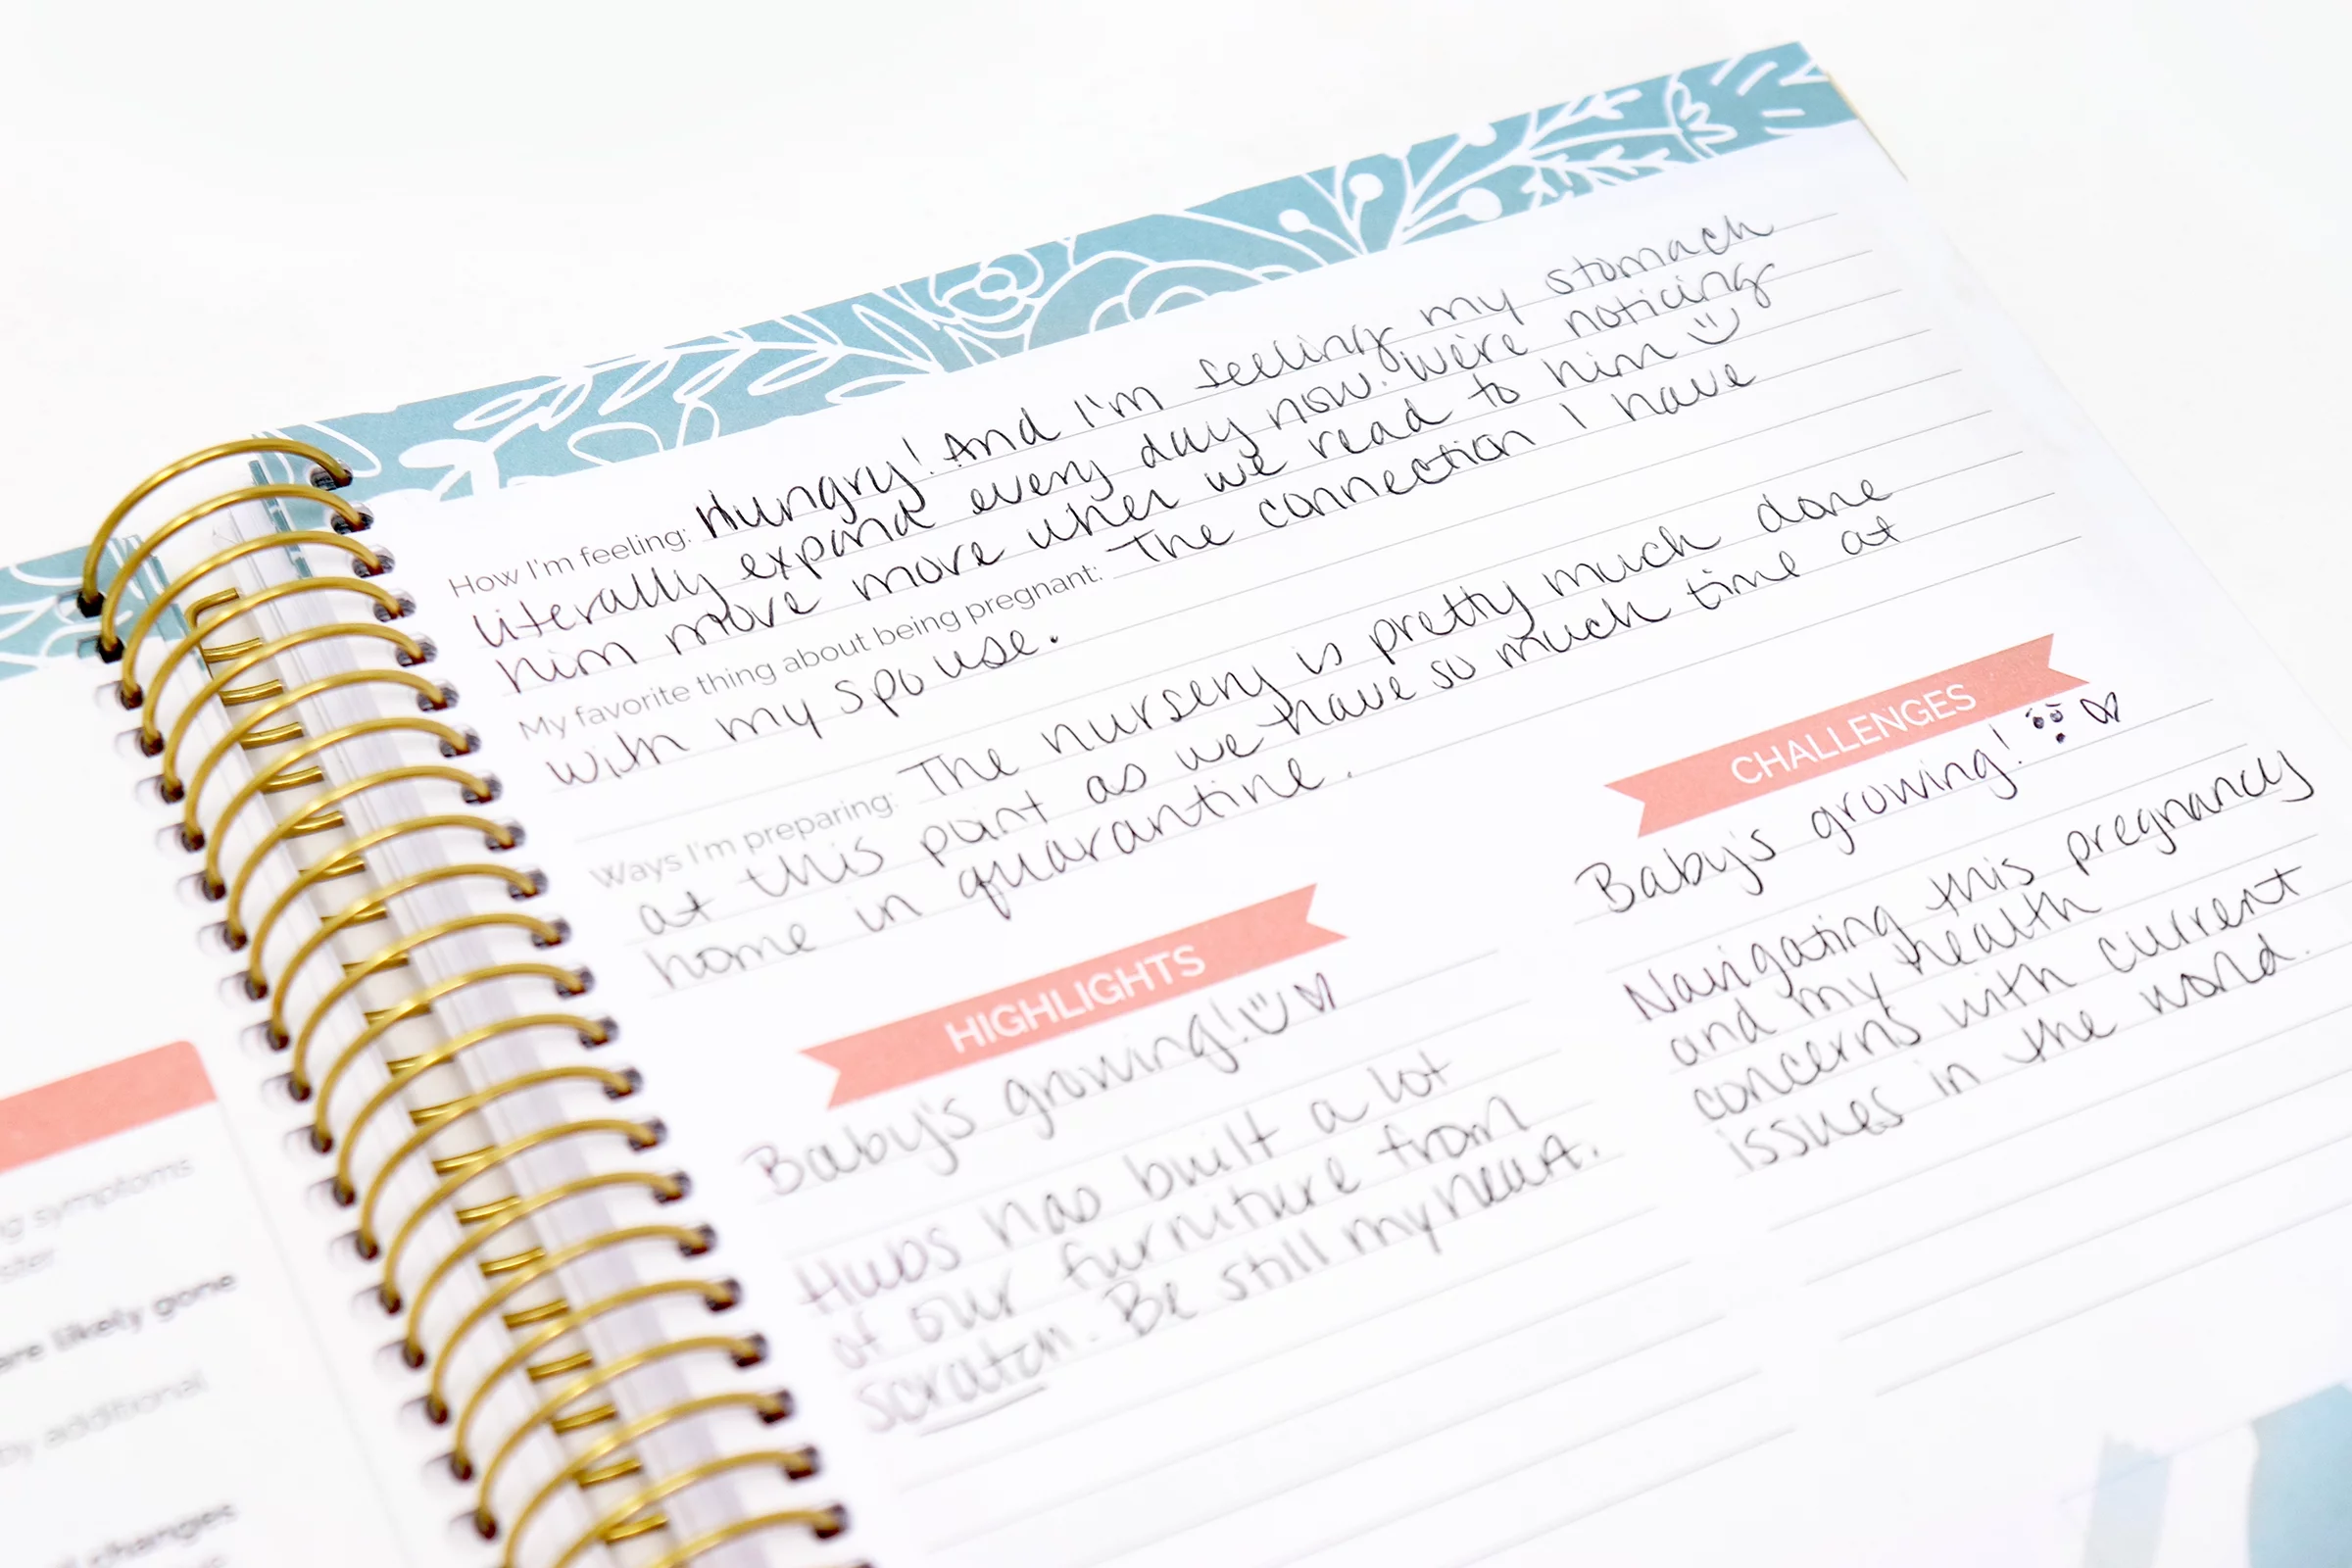 How I'm feeling: Hungry! And I'm feeling my stomach
literally expand every day now. We're noticing
him move more when we read to him
My favorite thing about being pregnant: The connection I have
with my spouse.
Ways I'm preparing: The nursery is pretty much done
at this point as we have so much time at
home in quarantine.
HIGHLIGHTS
Baby's growing!
Hubs has built a lot
of our furniture from
scratch. Be still my heart.
CHALLENGES
Baby's growing!
Navigating this pregnancy
and my health
concerns with current
issues in the world.
symptoms
are likely gone
by additional
changes